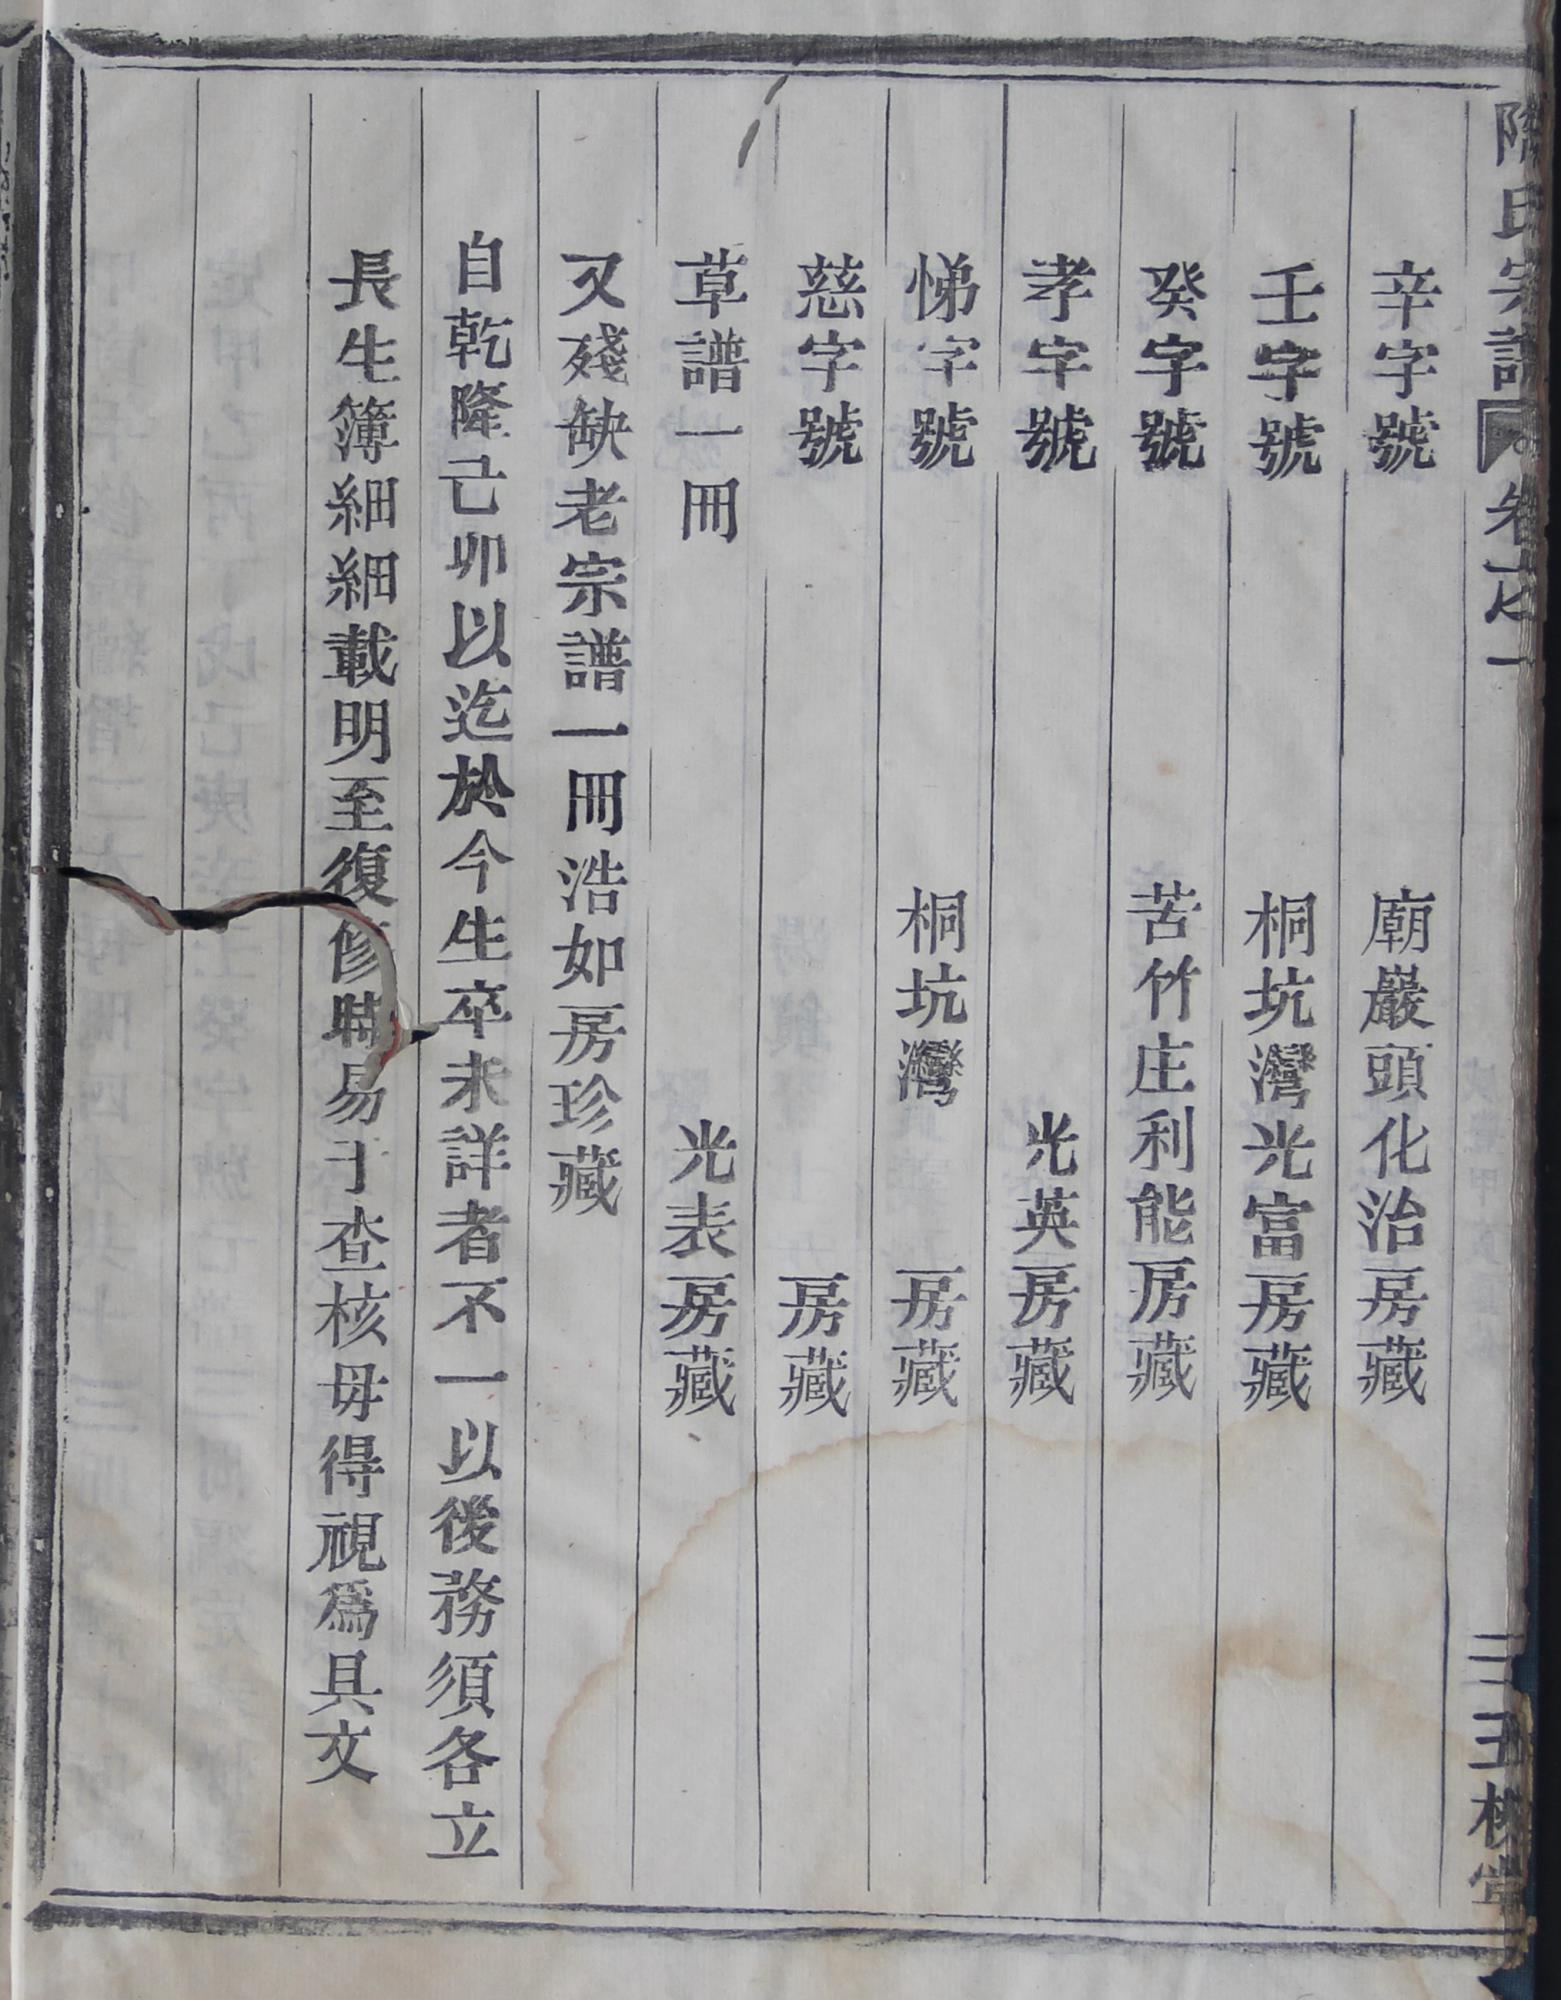 氏宗譜 卷之一
辛字號 廟巖頭化治房藏
壬字號 桐坑灣光富房藏
癸字號 苦竹庄利能房藏
孝字號 光英房藏
悌字號 桐坑灣 房藏
慈字號 房藏
草譜一冊 光表房藏
又殘缺老宗譜一冊浩如房珍藏
自乾隆己卯以迄於今生卒未詳者不一以後務須各立
長生簿細細載明至復修時易于查核毋得視爲具文